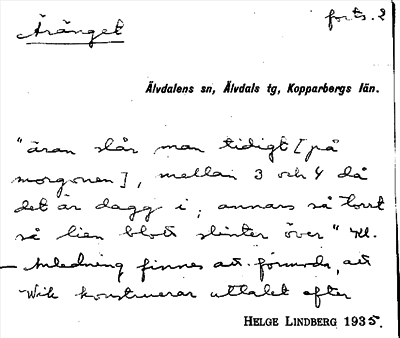 Äränget
forts. 2
Älvdalens sn, Älvdals tg, Kopparbergs län.
"äran slår man tidigt [på
morgonen], mellan 3 och 4 då
det är dagg i; annars så torrt
så lien blott slinter över"
— Anledning finnes att förmoda, att
Wik konstruerar uttalet efter
HELGE LINDBERG 1935.